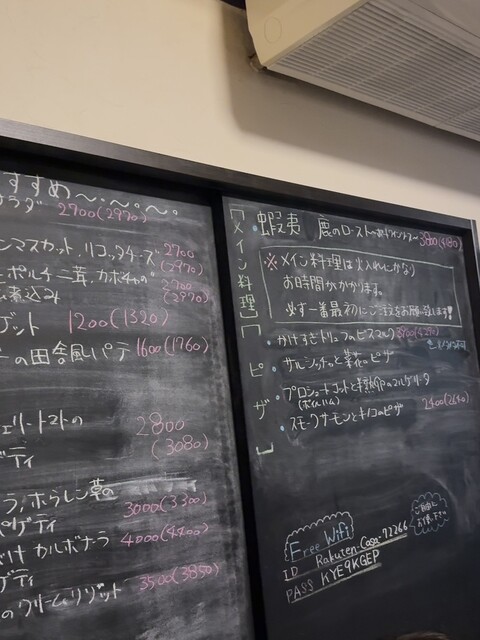 すすめ
サラダ 2700(2970)
ンマスカット、リコッチーズ 2700
(2970)
ポルチーニ茸、カボチャの 2700
煮込み (2970)
ゲット 1200(1320)
の田舎風パテ 1600(1760)
ェリートマトの 2800
ティ (3080)
ラ、ホウレン草の
パゲティ 3000(3300)
け カルボナーラ 4000(4400)
ゲティ
のクリームリゾット 3500(3850)
【メイン料理】
蝦夷 鹿のロースト 赤ワインソース 3800(4180)
※メイン料理は火入れにかなり
お時間かかります。
必ず一番最初にご注文をお願い致します!
【ピザ】
・かけすぎトリュフのビスマルク 3900(4290)
・サルシッチャと菜花のピザ
・プロシュートコットと半熟卵のマルゲリータ
(ボイルハム)
・スモークサーモンとキノコのピザ 2400(2640)
Free Wifi
ご自由に
お使い下さい
ID Rakuten-Casa-72266
PASS KYE9KGEP